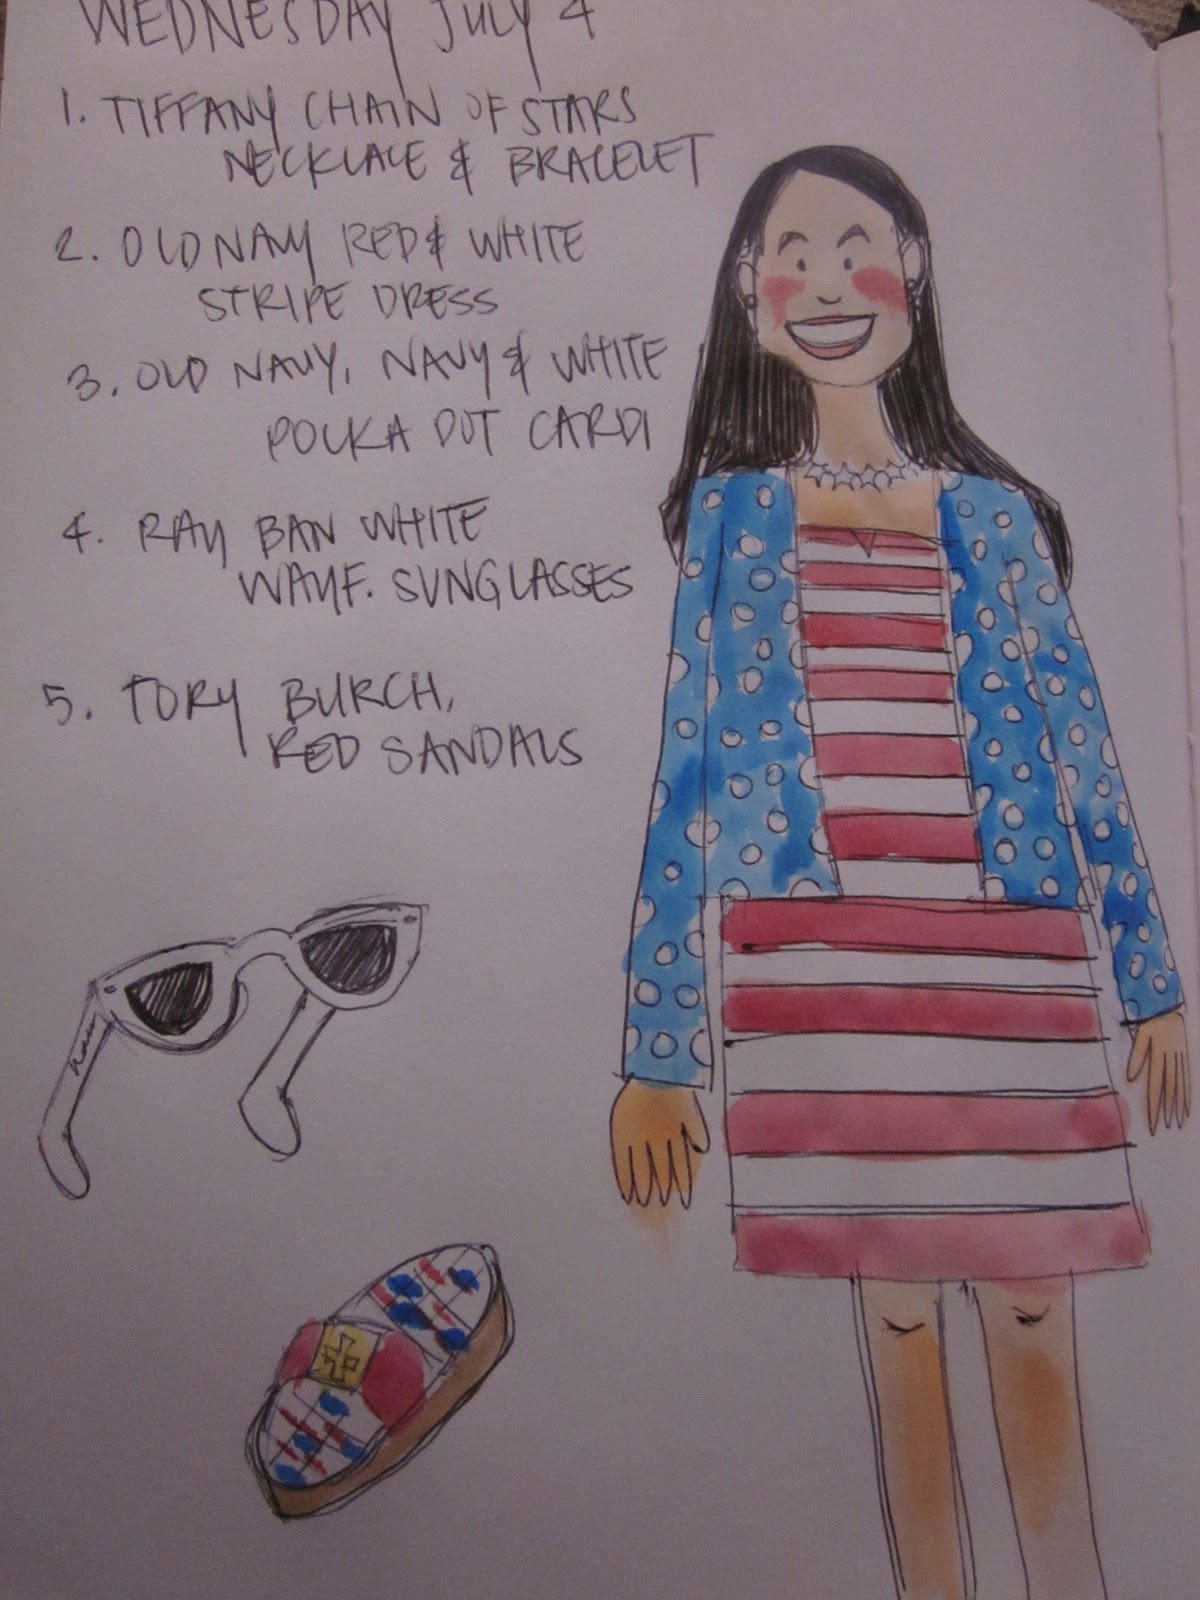 WEDNESDAY JULY 4
1. TIFFANY CHAIN OF STARS
NECKLACE & BRACELET
2. OLD NAVY RED & WHITE
STRIPE DRESS
3. OLD NAVY, NAVY & WHITE
POLKA DOT CARDI
4. RAY BAN WHITE
WAYF. SUNGLASSES
5. TORY BURCH,
RED SANDALS